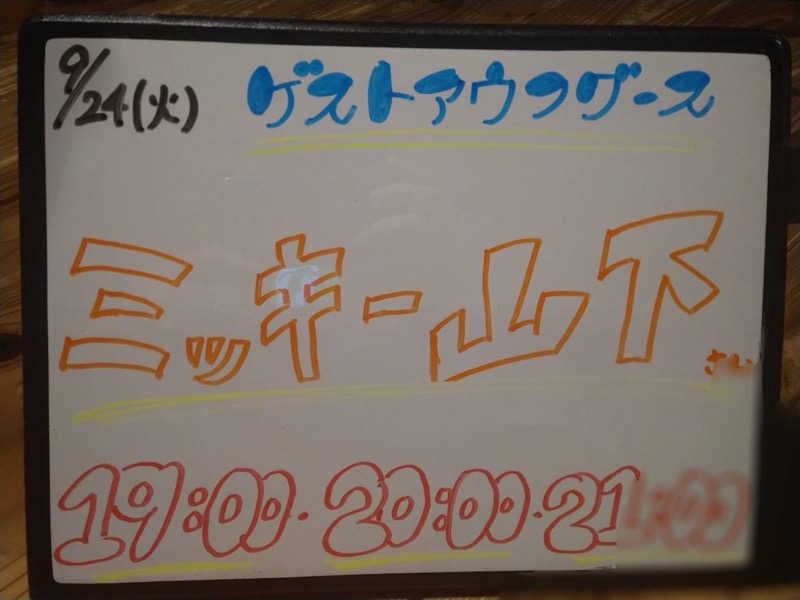 9/24(火) ゲストアウフグース
ミッキー山下
19:00・20:00・21:00